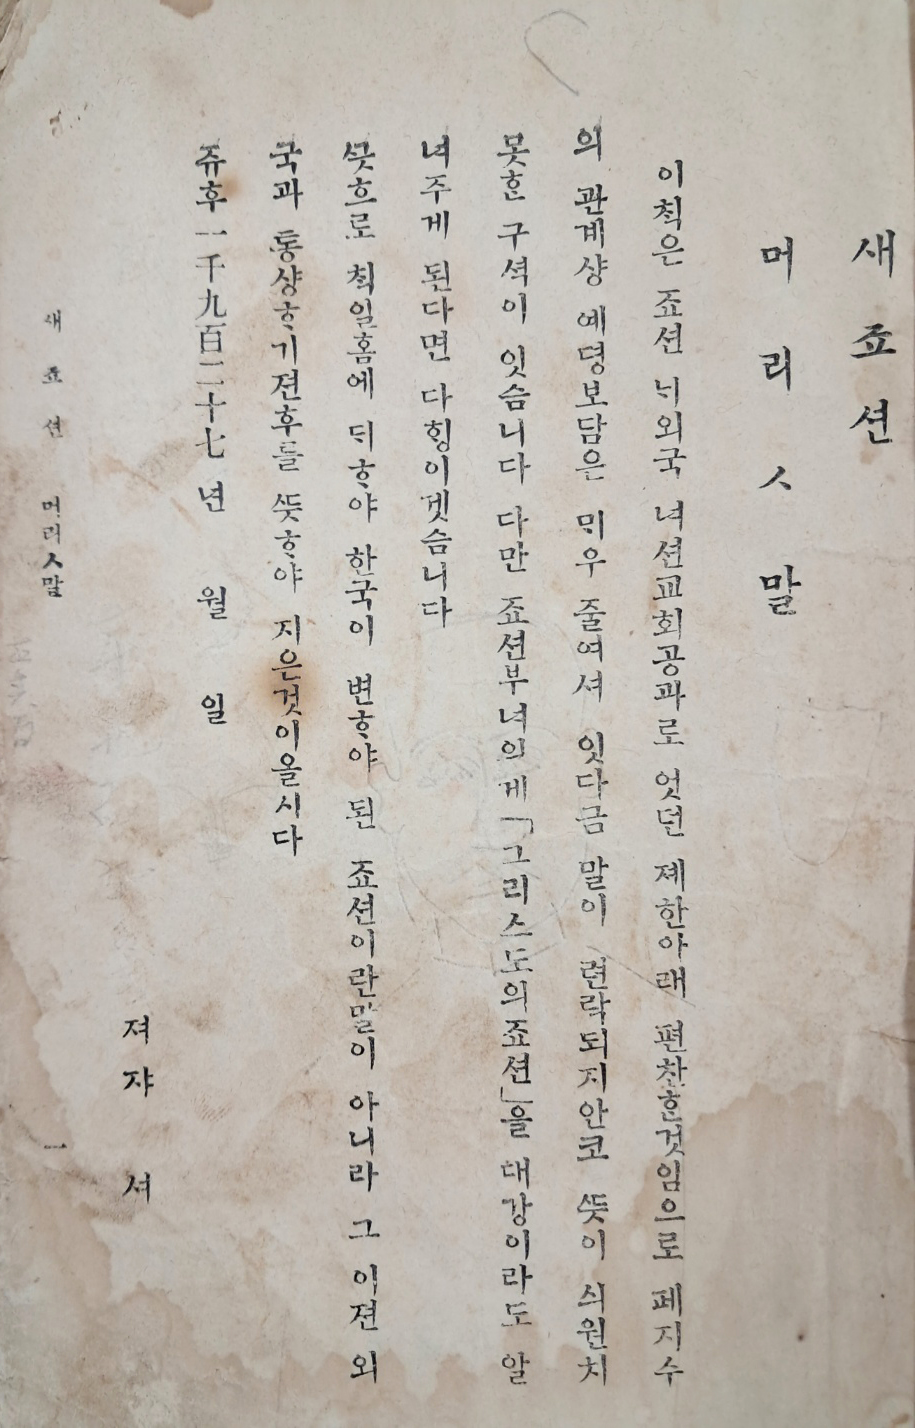 새 죠션
머 리 ㅅ 말
이ᄎᆡᆨ은 죠션 ᄂᆡ외국 녀션교회공과로 엇던 졔한아래 편찬ᄒᆞᆫ것임으로 페지수
의 관계샹 예뎡보담은 ᄆᆡ우 줄여셔 잇다금 말이 련락되지안코 ᄯᅳᆺ이 싀원치
못ᄒᆞᆫ 구셕이 잇슴니다 다만 죠션부녀의게「그리스도의죠션」을 대강이라도 알
녀주게 된다면 다ᄒᆡᆼ이겟슴니다
ᄭᅳᆺ흐로 ᄎᆡᆨ일홈에 ᄃᆡᄒᆞ야 한국이 변ᄒᆞ야 된 죠션이란말이 아니라 그 이젼 외
국과 통샹ᄒᆞ기젼후를 ᄯᅳᆺᄒᆞ야 지은것이올시다
쥬후一千九百二十七년 월 일
져쟈 셔
새 죠 션 머리ㅅ말 一